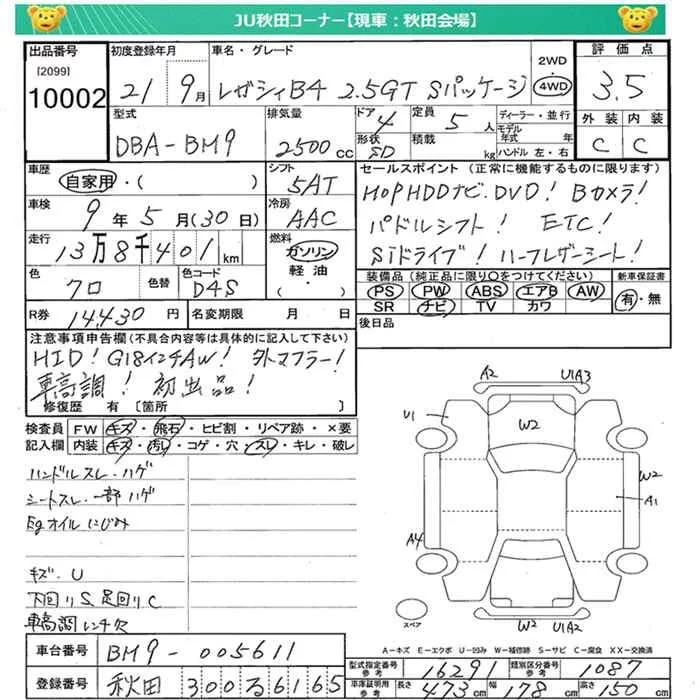 JU秋田コーナー【現車：秋田会場】
出品番号 初度登録年月 車名・グレード 2WD 評価点
[2099]
10002 21 9月 レガシィB4 2.5GT Sパッケージ 4WD 3.5
型式 排気量 ドア 4 定員 5人 ディーラー・並行 外装 内装
DBA-BM9 2500cc 形状 SD 積載 kg モデル年式 年 ハンドル 左・右 C C
車歴 シフト セールスポイント (正常に機能するものに限ります)
自家用・( ) 5AT HOPHDDナビ.DVD! Bカメラ!
車検 9年5月(30日) 冷房 AAC パドルシフト! ETC!
走行 13万8千401km 燃料 ガソリン SIドライブ! ハーフレザーシート!
軽油 ・( )
装備品 (純正品に限り○をつけてください) 新車保証書
色 クロ 色替 色コード D4S PS PW ABS エアB AW 有・無
SR ナビ TV カワ
R券 14,430円 名変期限 月 日 後日品
注意事項申告欄(不具合内容等は具体的に記入して下さい)
HID! G18インチAW! 外マフラー!
車高調! 初出品!
修復歴 有 [箇所 ]
検査員 FW キズ・飛石・ヒビ割・リペア跡・×要
記入欄 内装 キズ・汚レ・コゲ・穴・スレ・キレ・破レ
ハンドルスレ・ハゲ
シートスレ・一部ハゲ
Egオイルにじみ
キズ・U
下回りS、足回りC
車高調レンチ欠
A2 U1A3
U1 W2
W2
A1
A4
スペア W2 U1A2
A-キズ E-エクボ U-凹み W-補修跡 S-サビ C-腐食 XX-交換済
車台番号 BM9-005611
登録番号 秋田 300 る 6165
型式指定番号 参考 16291 類別区分番号 参考 1087
車庫証明用 参考 長さ 473cm 幅 178cm 高さ 150cm